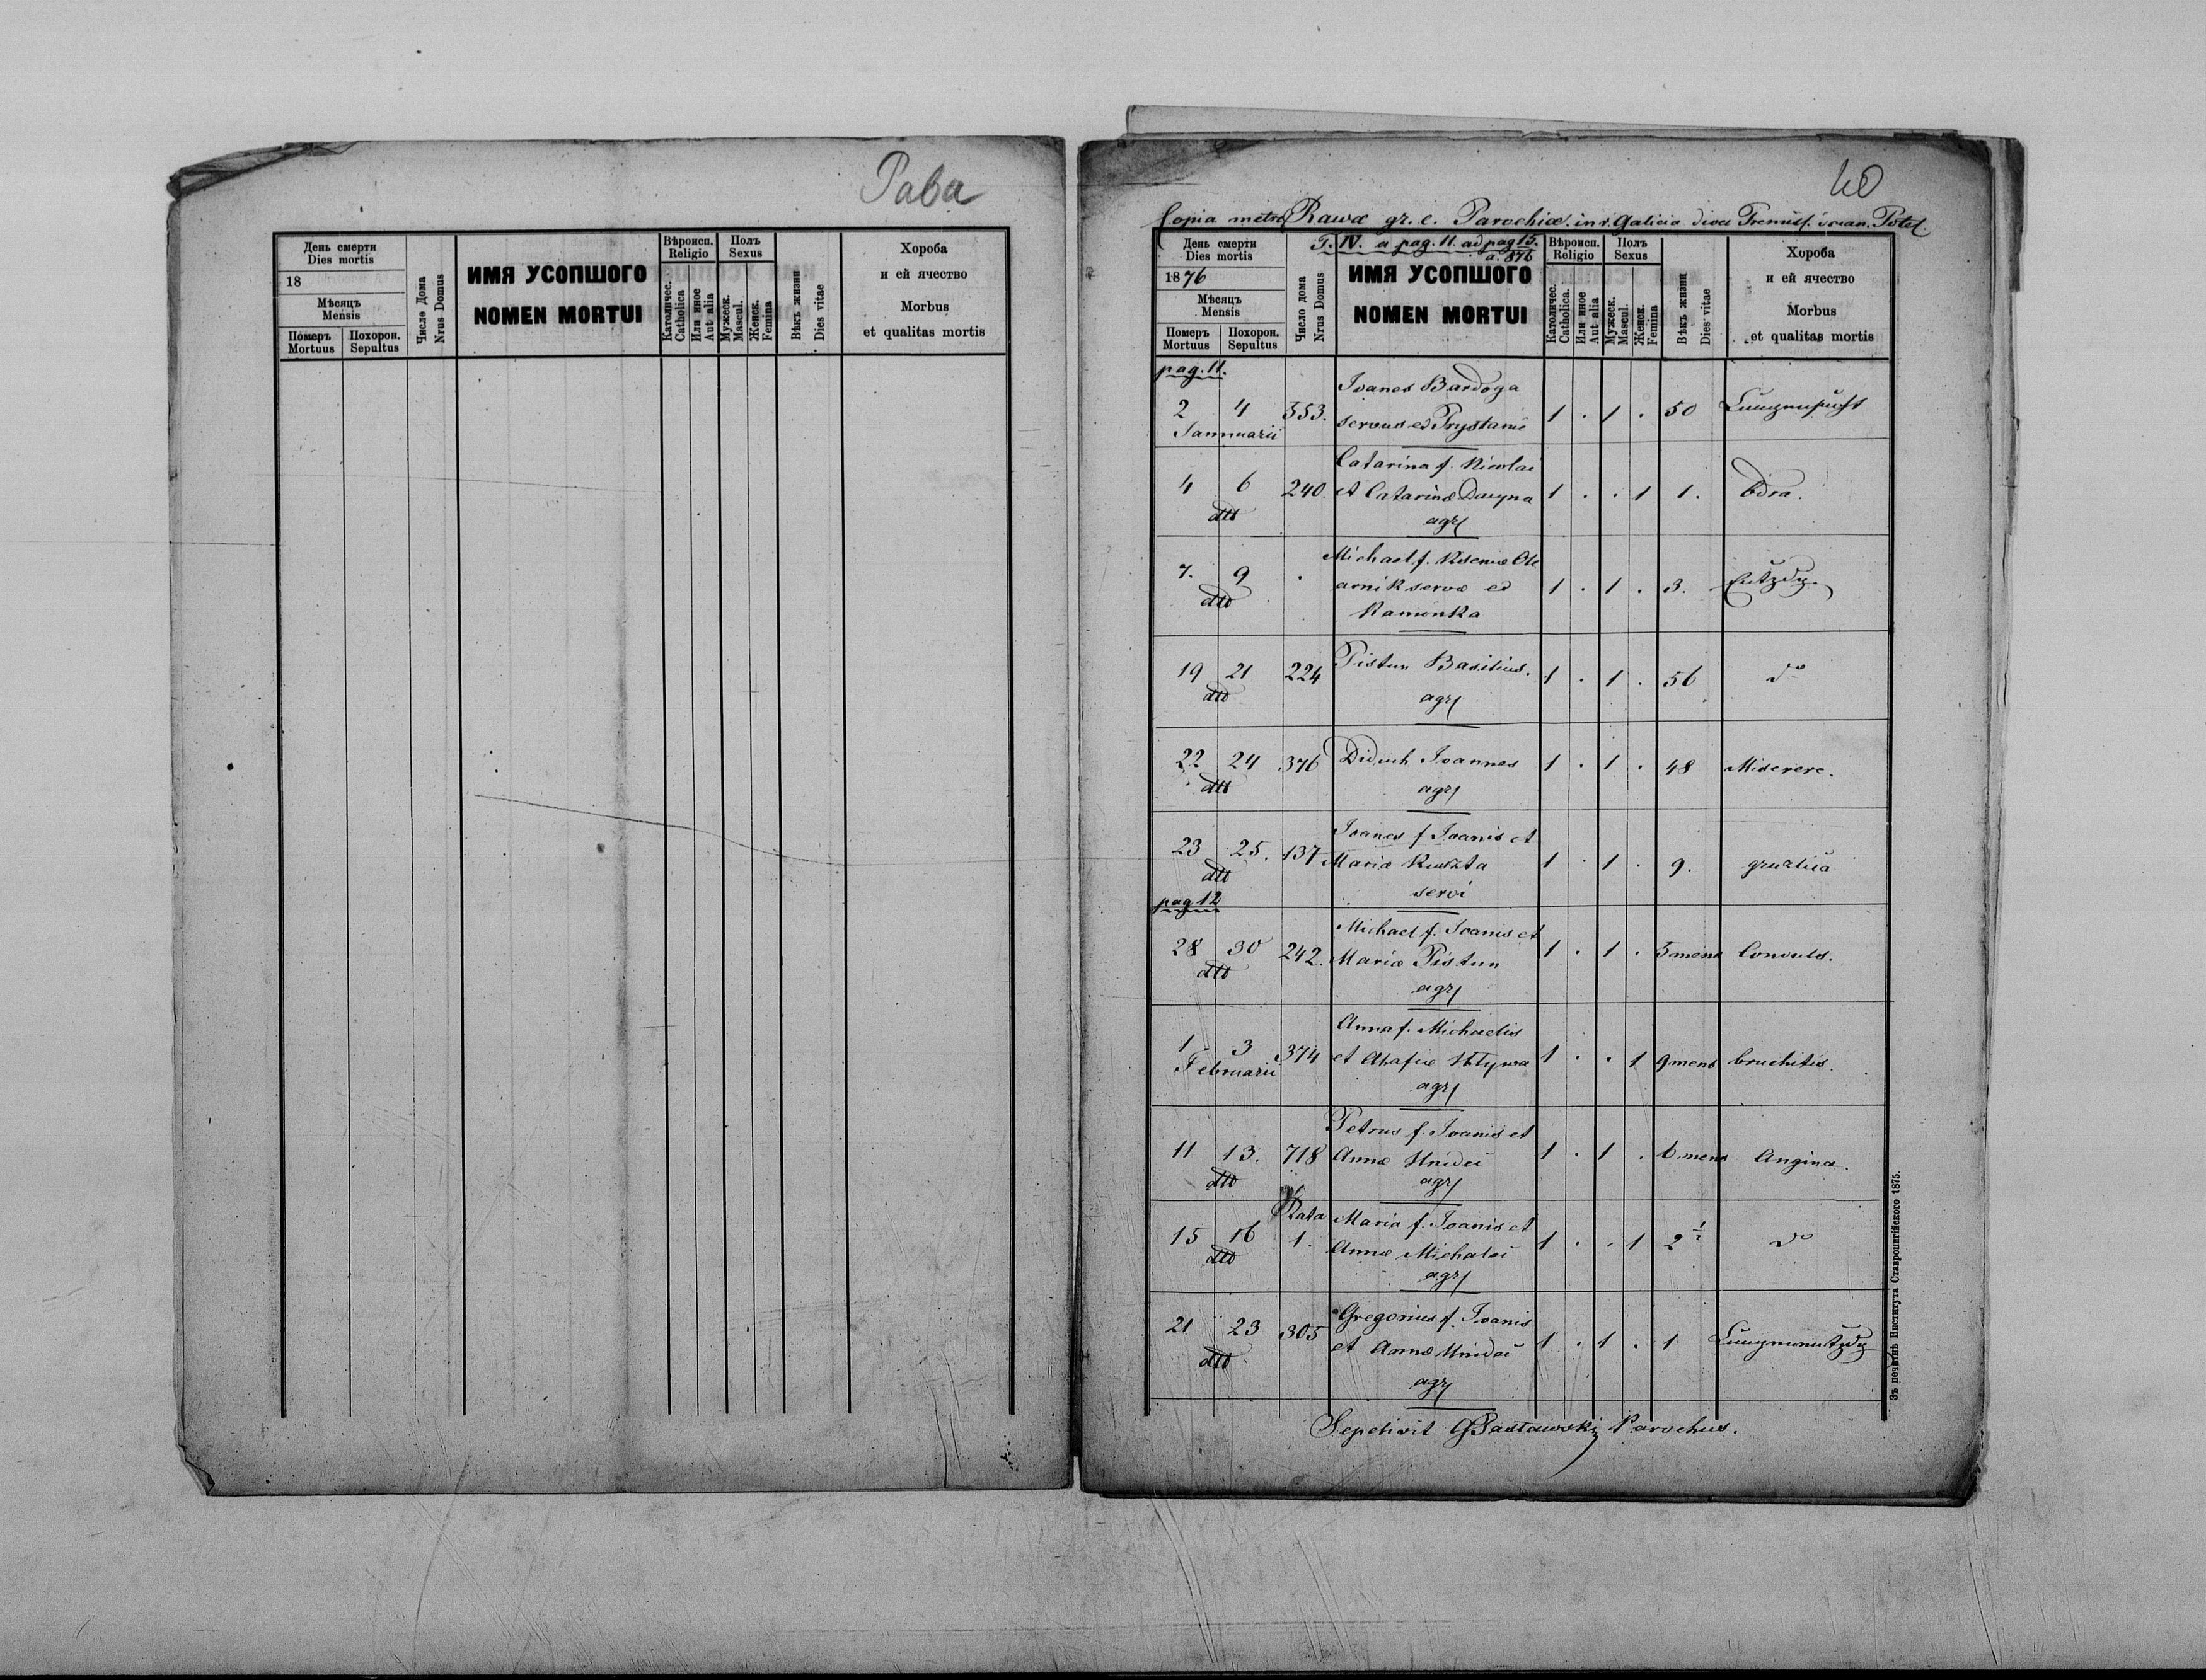 Рава
День смерти
Dies mortis
18
Мѣсяцъ
Mensis
Померъ
Mortuus
Похорон.
Sepultus
Число Дома
Nrus Domus
ИМЯ УСОПШОГО
NOMEN MORTUI
Вѣроисп.
Religio
Католичес.
Catholica
Или иное
Aut alia
Полъ
Sexus
Мужеск.
Mascul.
Женск.
Femina
Вѣкъ жизни
Dies vitae
Хороба
и ей ячество
Morbus
et qualitas mortis
40
Copia metr. Rawæ gr. c. Parochiæ in r. Galicia dioec
T. IV. a pag. 11. ad pag 15.
a. 876
День смерти
Dies mortis
1876
Мѣсяцъ
Mensis
Померъ
Mortuus
Похорон.
Sepultus
Число дома
Nrus Domus
ИМЯ УСОПШОГО
NOMEN MORTUI
Вѣроисп.
Religio
Католичес.
Catholica.
Или иное
Aut alia
Полъ
Sexus
Мужеск.
Mascul.
Женск.
Femina
Вѣкъ жизни
Dies vitae
Хороба
и ей ячество
Morbus
et qualitas mortis
pag. 11.
Ioanes Bardoga
2 4 553. servus ex Prystanie 1 . 1 . 50
Jannuarii
Catarina f. Nicolai
4 6 240. et Catarinæ 1 . . 1 1. Odra.
dtto agr
Michael f.
7. 9 . arnik servæ ex 1 . 1 . 3.
dtto Kamionka
19 21 224 Pistun Basilius. 1 . 1 . 56 do
dtto agr
22 24 376 Diduch Joannes 1 . 1 . 48 Miserere.
dtto agr
Joanes f Joanis et
23 25. 137 Mariæ Kuszta 1 . 1 . 9. gruzlica
dtto servi
pag 12
Michael f. Joanis et
28 30 242. Mariæ Pistun 1 . 1 . 5 mens Convuls.
dtto agr
Anna f. Michaelis
1 3 374 et Ahafiæ 1 . . 1 9 mens bruchitis.
Februarii agr
Petrus f. Joanis et
11 13. 718 Annæ Hnidei 1 . 1 . 6 mens Angina.
dtto agr
Rata Maria f. Joanis et
15 16 1. Annæ Michalci 1 . . 1 2 1/2 do
dtto agr
Gregorius f. Joanis
21 23 305 et Annæ Hnidei 1 . 1 . 1
dtto agr
Sepelivit Parochus.
Зъ печатнѣ Института Ставропигійского 1875.